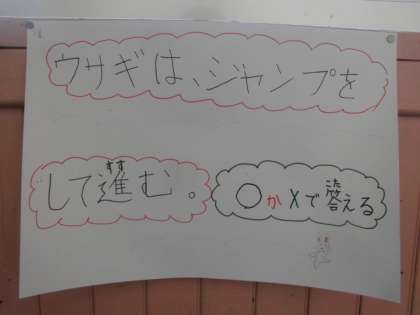 ウサギは、ジャンプを
すす
して進む。
○か×で答える